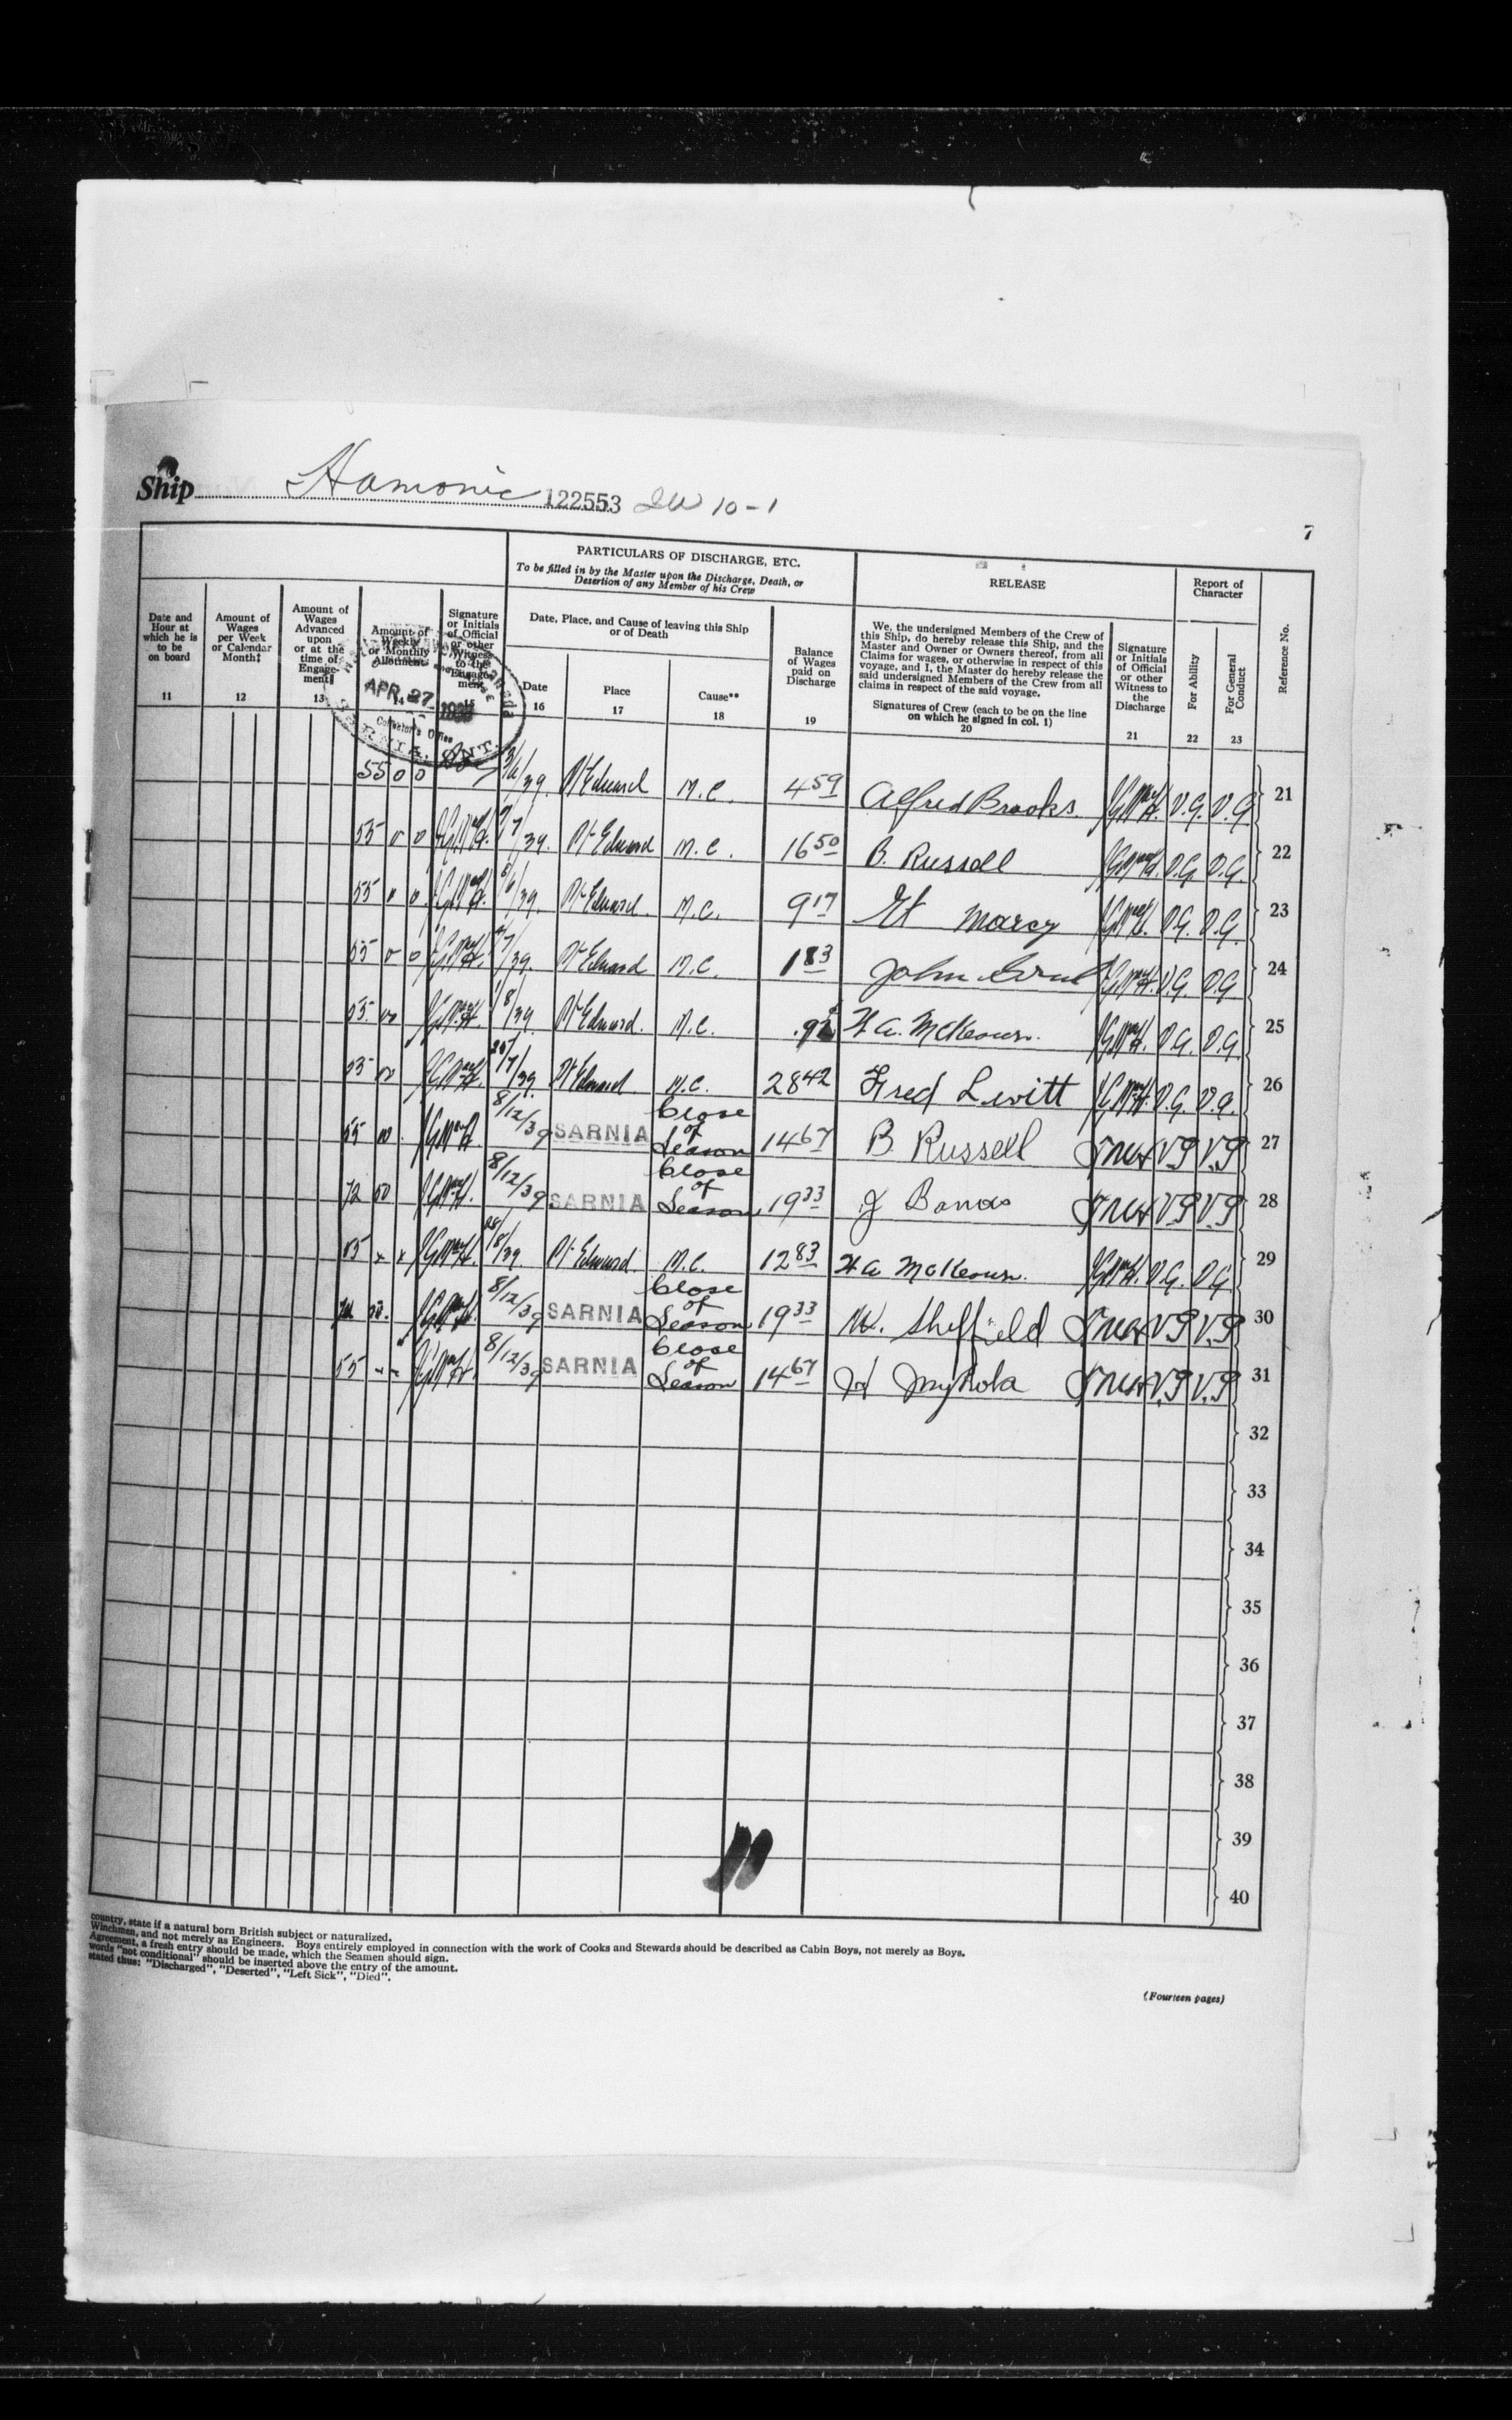 Ship Hamonic 122553 10-1
7
PARTICULARS OF DISCHARGE, ETC.
To be filled in by the Master upon the Discharge, Death, or
Desertion of any Member of his Crew
RELEASE
Report of
Character
Date and
Hour at
which he is
to be
on board
11
Amount of
Wages
per Week
or Calendar
Month‡
12
Amount of
Wages
Advanced
upon
or at the
time of
Engage-
ment‖
13
Amount of
Weekly
or Monthly
Allotment
14
Signature
or Initials
of Official
or other
Witness
to the
Engage-
ment
15
APR 27
Date, Place, and Cause of leaving this Ship
or of Death
Date
16
Place
17
Cause**
18
Balance
of Wages
paid on
Discharge
19
We, the undersigned Members of the Crew of
this Ship, do hereby release this Ship, and the
Master and Owner or Owners thereof, from all
Claims for wages, or otherwise in respect of this
voyage, and I, the Master do hereby release the
said undersigned Members of the Crew from all
claims in respect of the said voyage.
Signatures of Crew (each to be on the line
on which he signed in col. 1)
20
Signature
or Initials
of Official
or other
Witness to
the
Discharge
21
For Ability
22
For General
Conduct
23
Reference No.
55 0 0 /39. Pt Edward M.C. 4 59 Alfred Brooks V.G. V.G. 21
55 0 0 /7/39. Pt Edward M.C. 16 50 B. Russell V.G. V.G. 22
55 0 0 /6/39. Pt Edward M.C. 9 17 Marcy V.G. V.G. 23
55 0 0 /7/39. Pt Edward M.C. 1 83 John V.G. V.G. 24
55 00 /8/39. Pt Edward. M.C. H A. McKeown. V.G. V.G. 25
55 00 /7/39. Pt Edward M.C. 28 42 Fred Levitt V.G. V.G. 26
55 00 8/12/39 SARNIA Close of Season 14 67 B. Russell V.G V.G 27
72 50 8/12/39 SARNIA Close of Season 19 33 J Banas V.G V.G 28
55 x x 28/8/39 Pt Edward M.C. 12 83 H A McKeown. V.G. V.G. 29
50. 8/12/39 SARNIA Close of Season 19 33 W. Sheffield V.G V.G 30
55 - - 8/12/39 SARNIA Close of Season 14 67 H Mykola V.G V.G 31
32
33
34
35
36
37
38
39
40
country, state if a natural born British subject or naturalized.
Winchmen, and not merely as Engineers. Boys entirely employed in connection with the work of Cooks and Stewards should be described as Cabin Boys, not merely as Boys.
Agreement, a fresh entry should be made, which the Seamen should sign.
words "not conditional" should be inserted above the entry of the amount.
stated thus: "Discharged", "Deserted", "Left Sick", "Died".
(Fourteen pages)